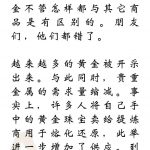 金不管怎样都与其它商
品是有区别的。朋友
们，他们都错了。
越来越多的黄金被开采
出来。与此同时，贵重
金属的需求量缩减。事
实上，许多人将自己手
中的黄金珠宝卖给提炼
商用于熔化还原，此举
进一步增加了供应。到